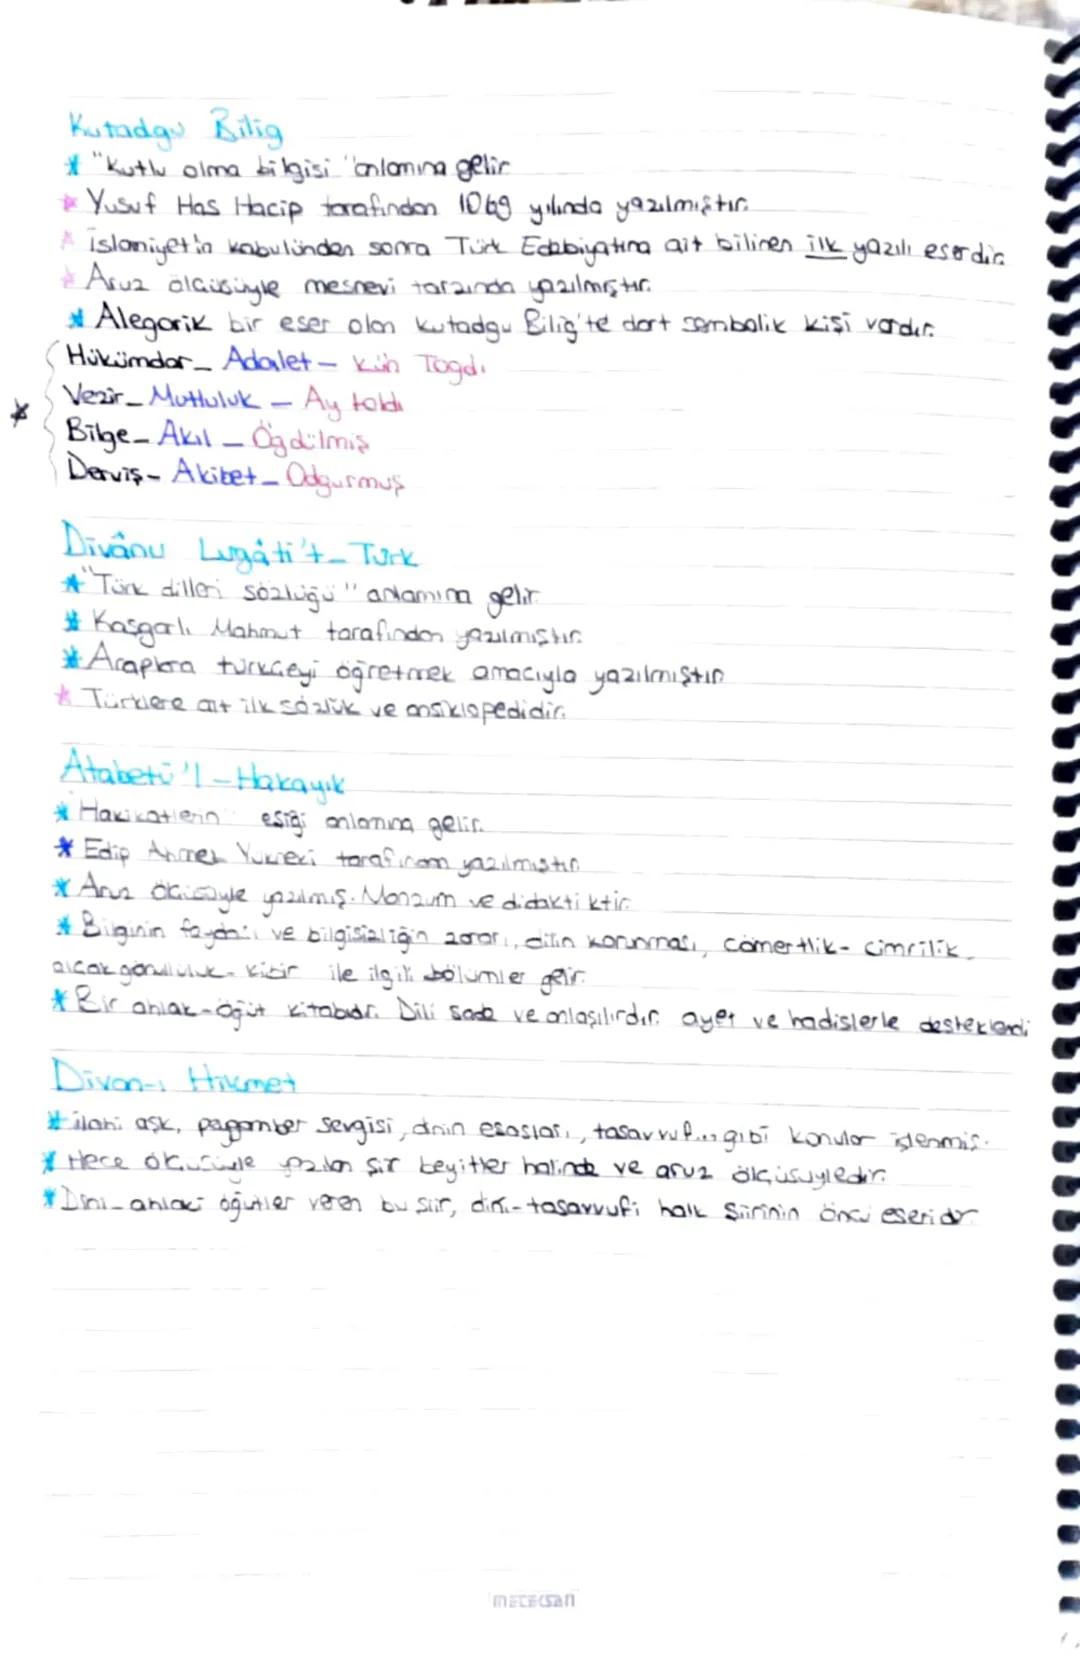 Kutadgu Bilig
* "Kutlu olma bilgisi" anlamına gelir.
* Yusuf Has Hacip tarafından 1069 yılında yazılmıştır.
* İslamiyet'in kabulünden sonra Türk Edebiyatına ait bilinen ilk yazılı eserdir.
* Aruz ölçüsüyle mesnevi tarzında yazılmıştır.
* Alegorik bir eser olan Kutadgu Bilig'te dört sembolik kişi vardır.
Hükümdar - Adalet - Kün Togdı
* Vezir - Mutluluk - Ay toldı
Bilge - Akıl - Ögdülmiş
Derviş - Akibet - Odgurmuş
Divânu Lugâti't-Türk
* "Türk dilleri sözlüğü" anlamına gelir.
* Kaşgarlı Mahmut tarafından yazılmıştır.
* Araplara türkçeyi öğretmek amacıyla yazılmıştır.
* Türklere ait ilk sözlük ve ansiklopedidir.
Atabetü'l-Hakayık
* Hakikatlerin eşiği anlamına gelir.
* Edip Ahmet Yükneki tarafından yazılmıştır.
* Aruz ölçüsüyle yazılmış. Manzum ve didaktiktir.
* Bilginin faydası ve bilgisizliğin zararı, dilin korunması, cömertlik - cimrilik,
alçak gönüllülük - kibir ile ilgili bölümler gelir.
* Bir ahlak-öğüt kitabıdır. Dili sade ve anlaşılırdır. ayet ve hadislerle desteklendi
Divan-ı Hikmet
* ilahi aşk, peygamber sevgisi, dinin esasları, tasavvuf... gibi konular işlenmiş.
* Hece ölçüsüyle yazılan şiir beyitler halinde ve aruz ölçüsüyledir.
* Dini-ahlaki öğütler veren bu şiir, dini-tasavvufi halk şiirinin öncü eseridir.
metecsan